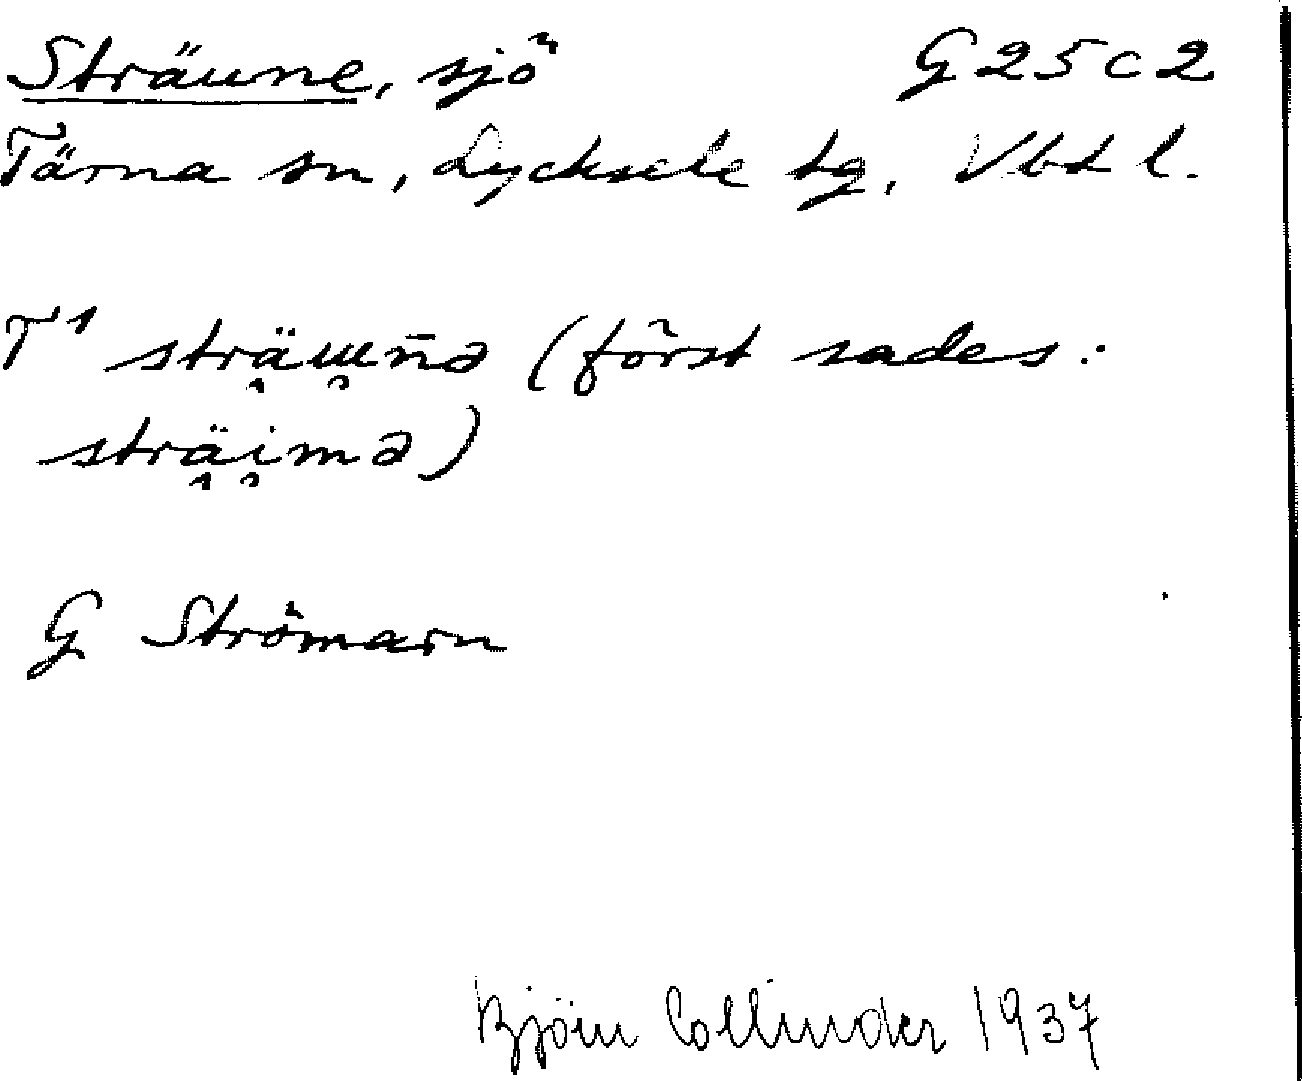 Sträune, sjö G25c2
Tärna sn, Lycksele tg, Vbt l.
T¹ strä̭ɯ̯n̄ə (först sades:
strä̭i̯mə)
G Strömarn
Björn Collinder 1937